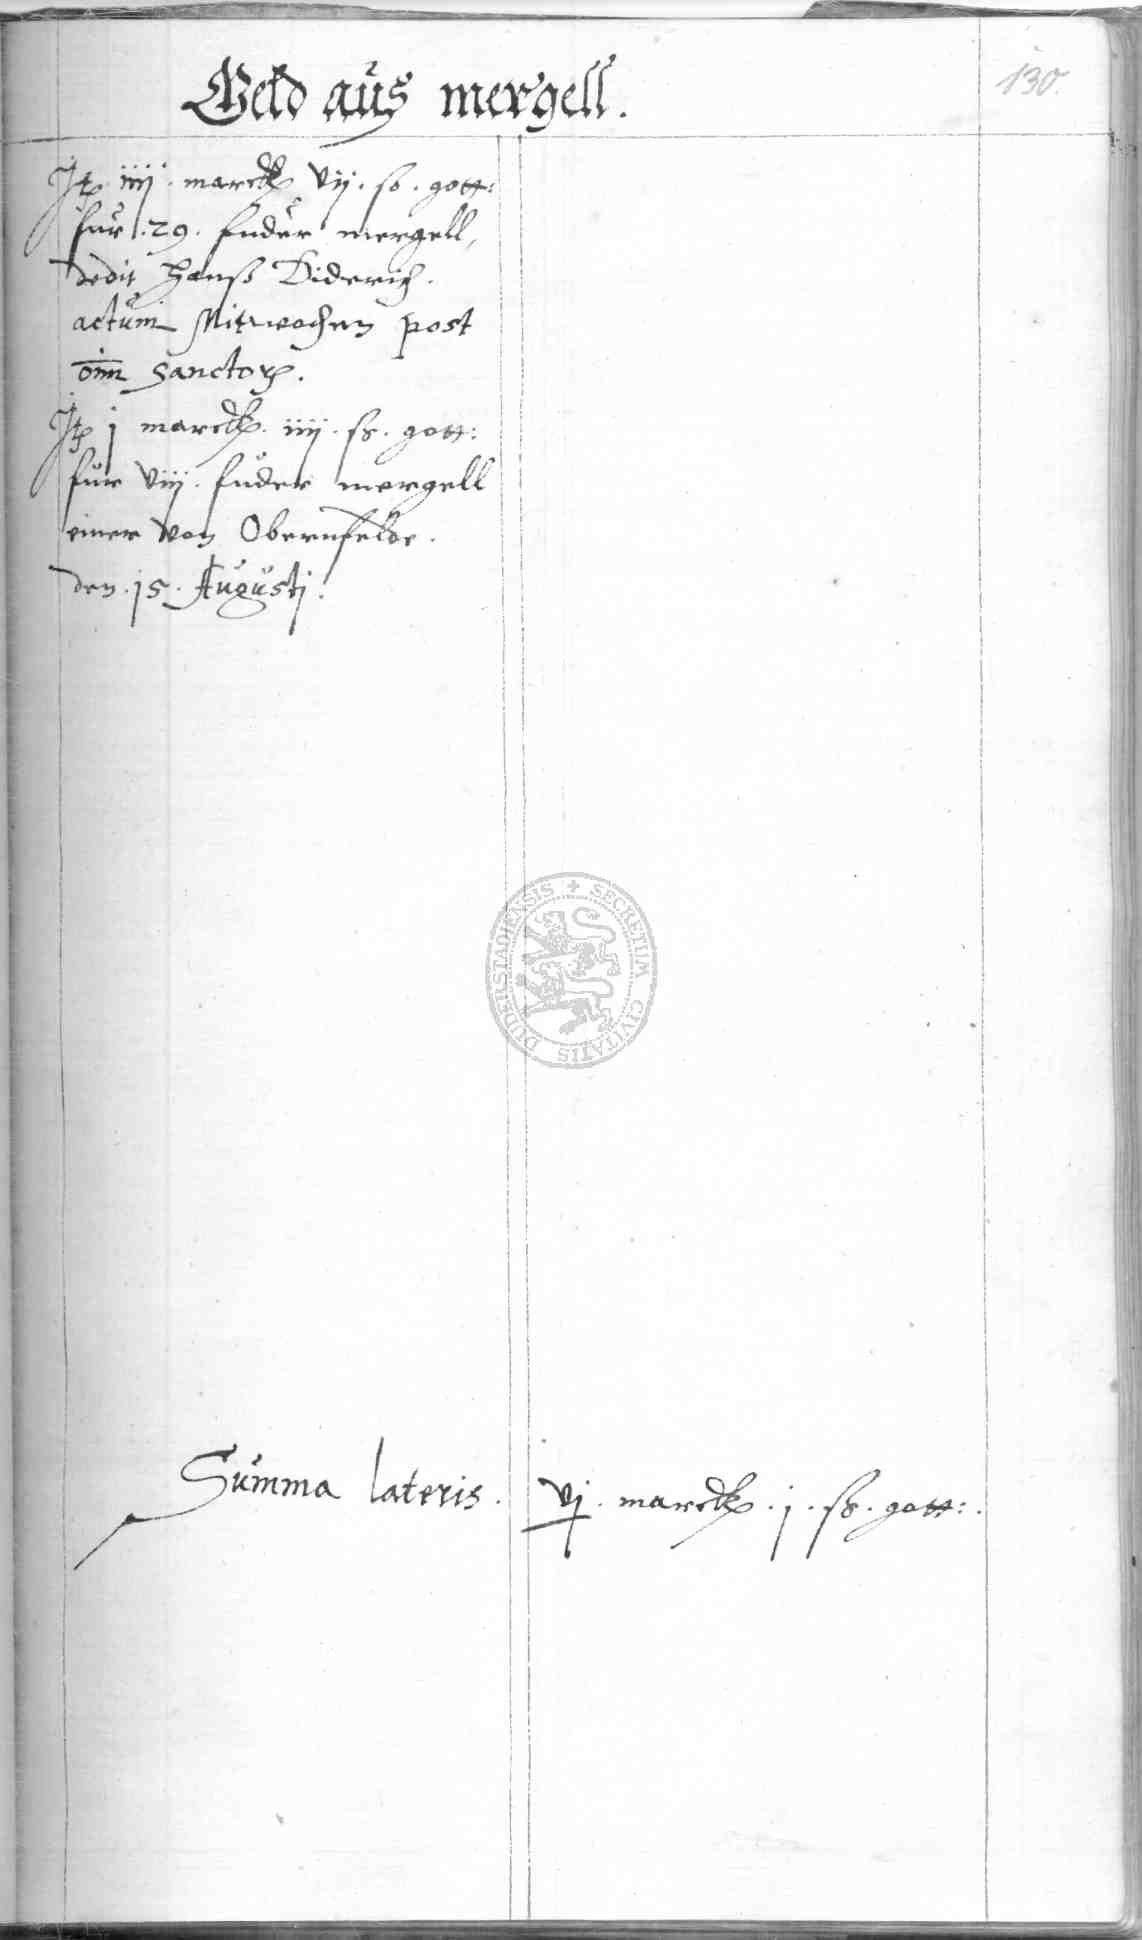 Geld aus mergell.
130.
Jt. iiij. marck vij. ß. gott:
fur .29. fuder mergell,
dedit Hanß Diderich.
actum Mitwochen post
oim Sanctor.
Jt. j marck. iiij. ß. gott:
fur viij. fuder mergell
einer von Obernfelde.
den .15. Augustj.
SECRETUM CIVITATIS DUDERSTADIENSIS
Summa lateris. vj. marck .j. ß. gott:.